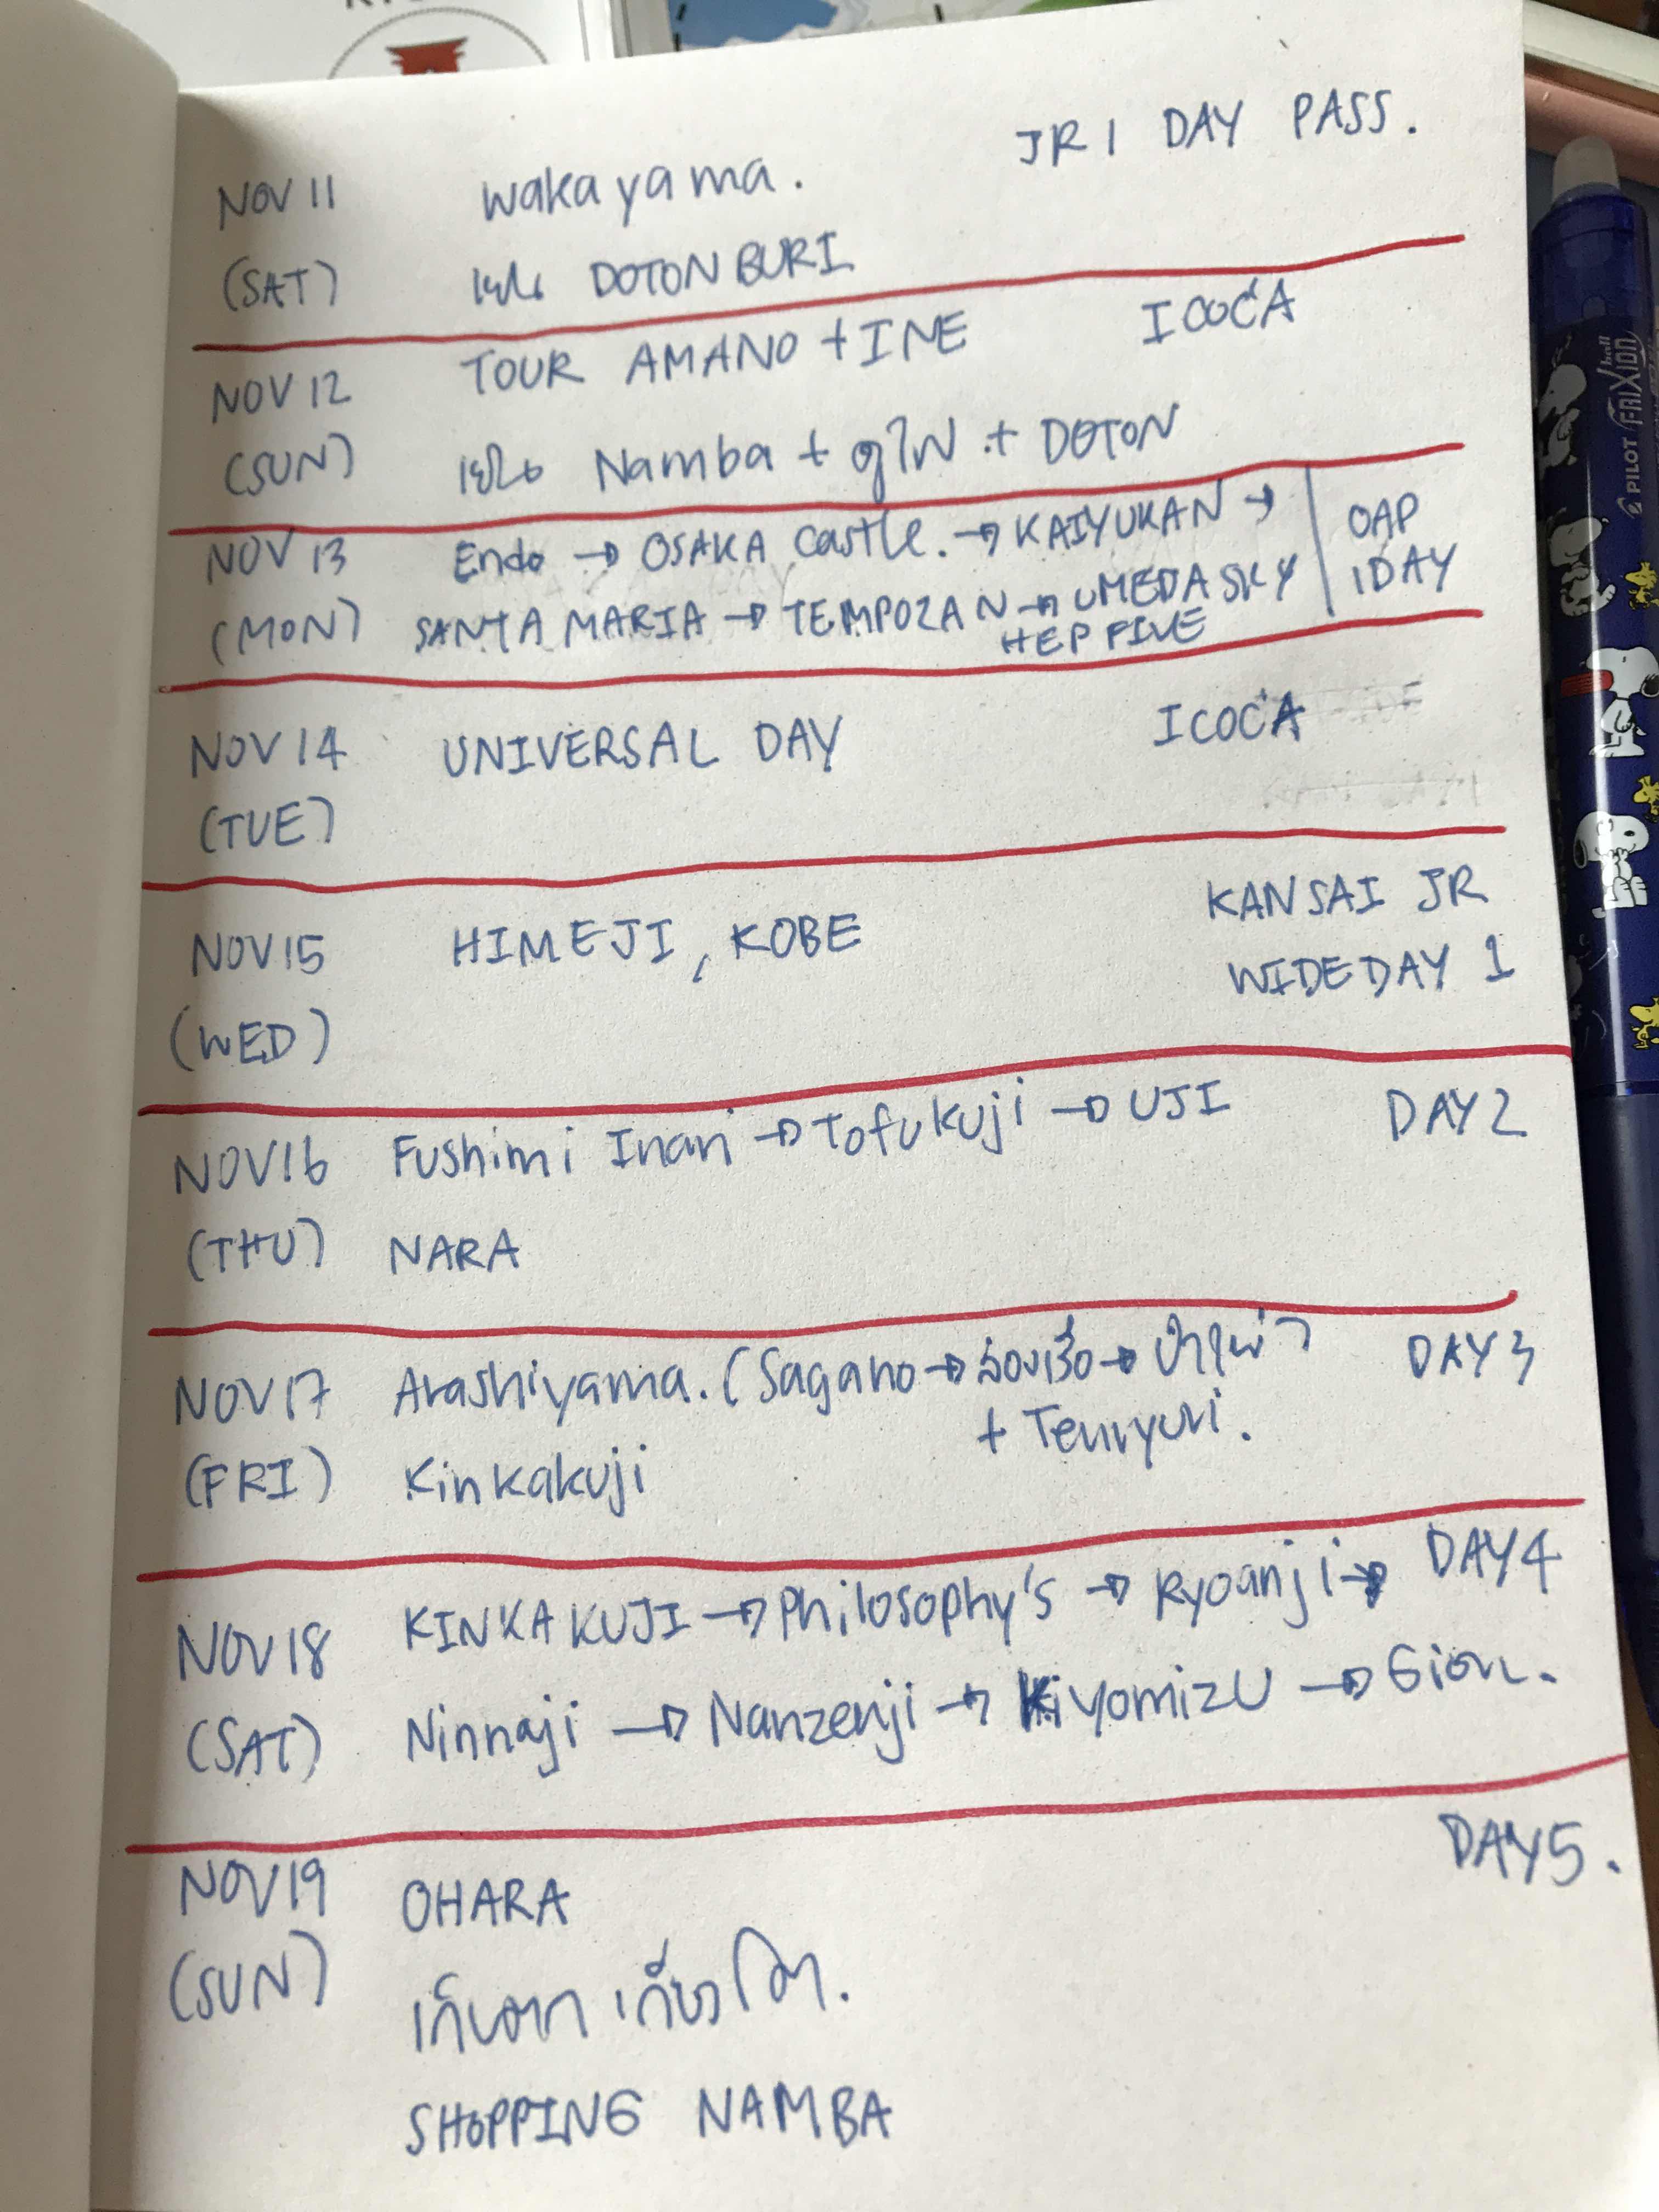 JR 1 DAY PASS.
NOV 11 wakayama.
(SAT) เย็น DOTONBURI
NOV 12 TOUR AMANO + INE ICOCA
(SUN) เย็น Namba + ดูไฟ + DOTON
NOV 13 Endo → OSAKA Castle. → KAIYUKAN → OAP
(MON) SANTA MARIA → TEMPOZAN → UMEDA SKY 1DAY
HEP FIVE
NOV 14 UNIVERSAL DAY ICOCA
(TUE)
KANSAI JR
NOV 15 HIMEJI, KOBE
WIDE DAY 1
(WED)
NOV 16 Fushimi Inari → Tofukuji → UJI DAY 2
(THU) NARA
NOV 17 Arashiyama. (Sagano → ล่องเรือ → ป่าไผ่) DAY 3
+ Tenryuri.
(FRI) Kinkakuji
NOV 18 KINKAKUJI → Philosophy's → Ryoanji → DAY 4
(SAT) Ninnaji → Nanzenji → Kiyomizu → Gion.
DAY 5.
NOV 19 OHARA
(SUN) เก็บตก เกียวโต.
SHOPPING NAMBA
PILOT FRIXION ball